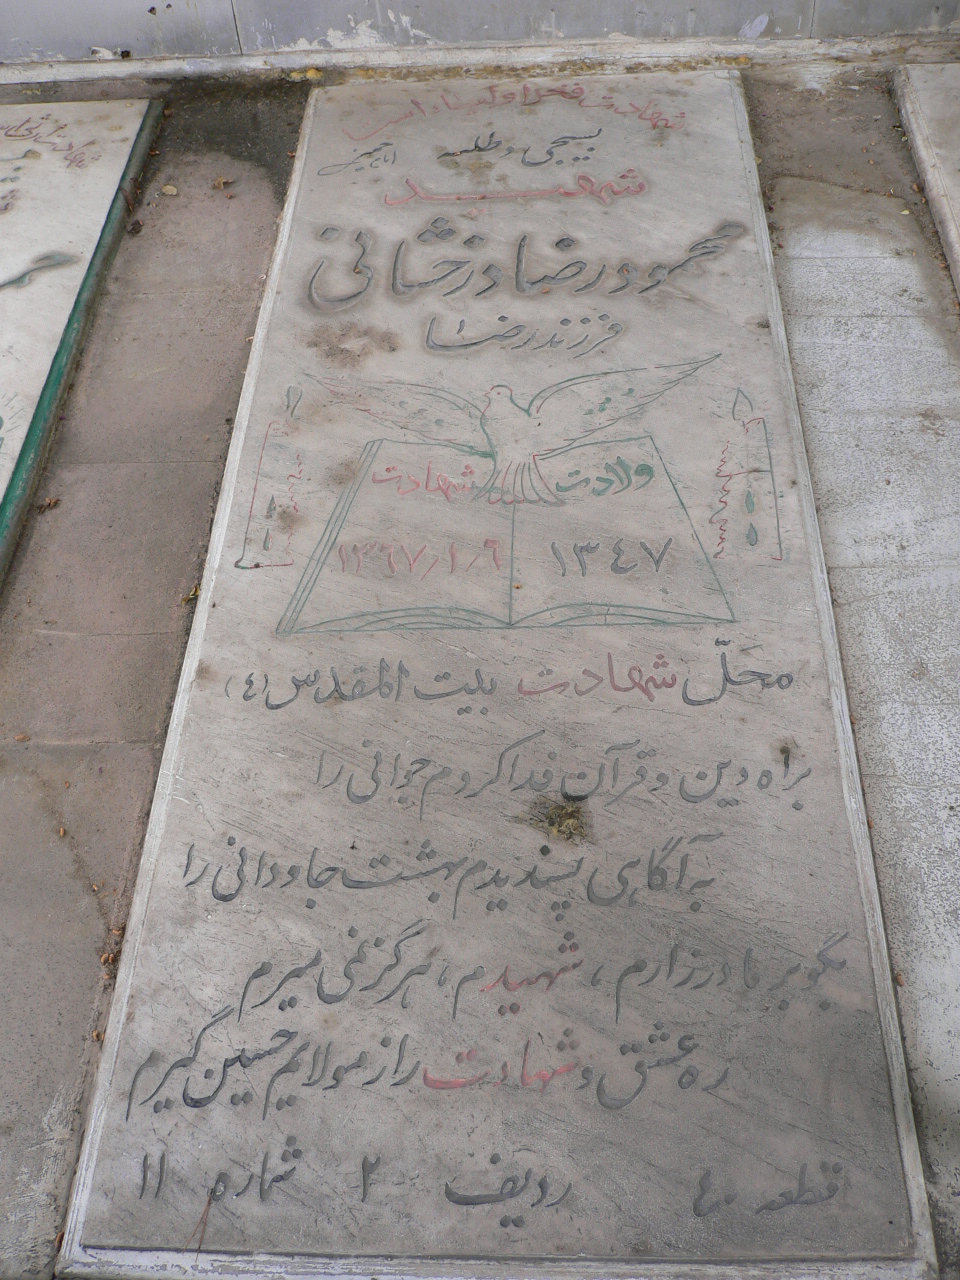 شهادت فخر اولیاء است
بسیجی و طلبه
شهید
محمود رضا درخشانی
فرزند رضا
ولادت شهادت
۱۳۴۷ ۱۳۶۷/۱/۶
محلّ شهادت بیت المقدس (٤)
براه دین و قرآن فدا کردم جوانی را
به آگاهی پسندیدم بهشت جاودانی را
بگو بر مادر زارم ، شهیدم ، هرگز نمی میرم
ره عشق و شهادت را ز مولایم حسین گیرم
قطعه ٤٠ ردیف ۲ شماره ۱۱